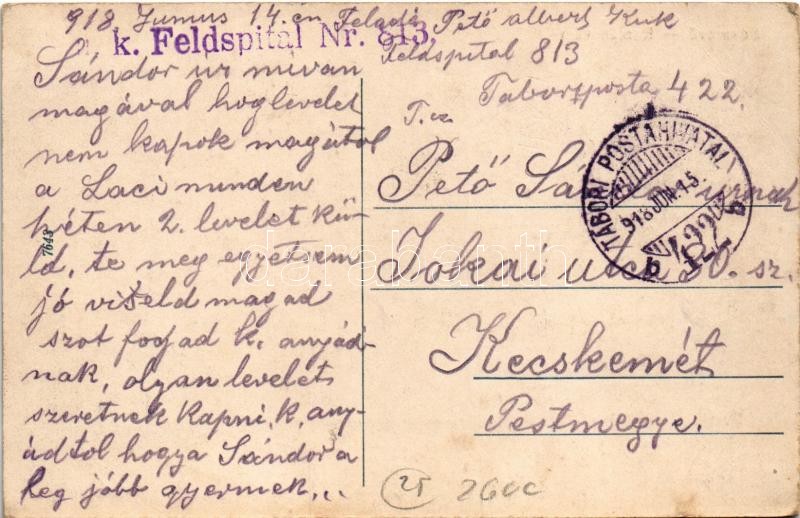 918 Junius 14.én Feladó Pető Albert Kuk
k. Feldspital Nr. 813.
Feldspital 813
Taborrposta 422.
Sándor ur mi van
magával hoglevelet
nem kapok magátol
a Laci minden
héten 2. levelet kü-
ld, te meg egyetsem
jó viseld magad
szot fogad k. anyád-
nak, olyan levelet
szeretnek kapni, k. any-
ádtol hogya Sándor a
leg jobb gyermek...
7643
T. cz
Pető Sándor urnak
Jokai utca 30. sz.
Kecskemét
Pestmegye.
TÁBORI POSTAHIVATAL
918 JUN. 15.
b 422
darabanth
25 2600